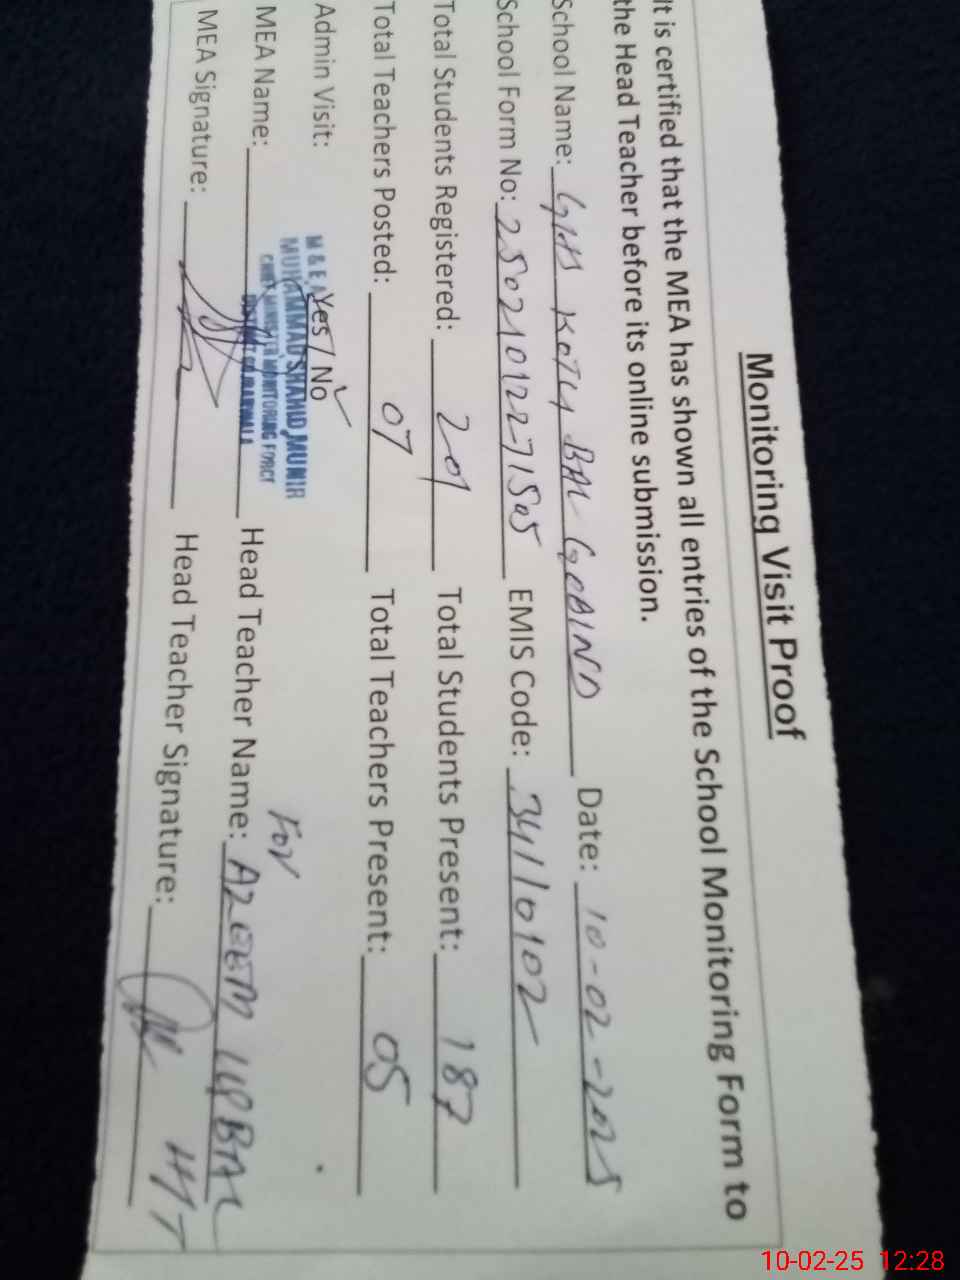 Monitoring Visit Proof
It is certified that the MEA has shown all entries of the School Monitoring Form to
the Head Teacher before its online submission.
School Name: GHS KOTLI BAL GOBIND Date: 10-02-2025
School Form No: 250210122271505 EMIS Code: 34110102
Total Students Registered: 201 Total Students Present: 187
Total Teachers Posted: 07 Total Teachers Present: 05
Admin Visit: Yes / No ✓
M & EA
MUHAMMAD SHAHID MUNIR
CHIEF MINISTER MONITORING FORCE
For
MEA Name: Head Teacher Name: AZEEM IQBAL
MEA Signature: Head Teacher Signature:
10-02-25 12:28